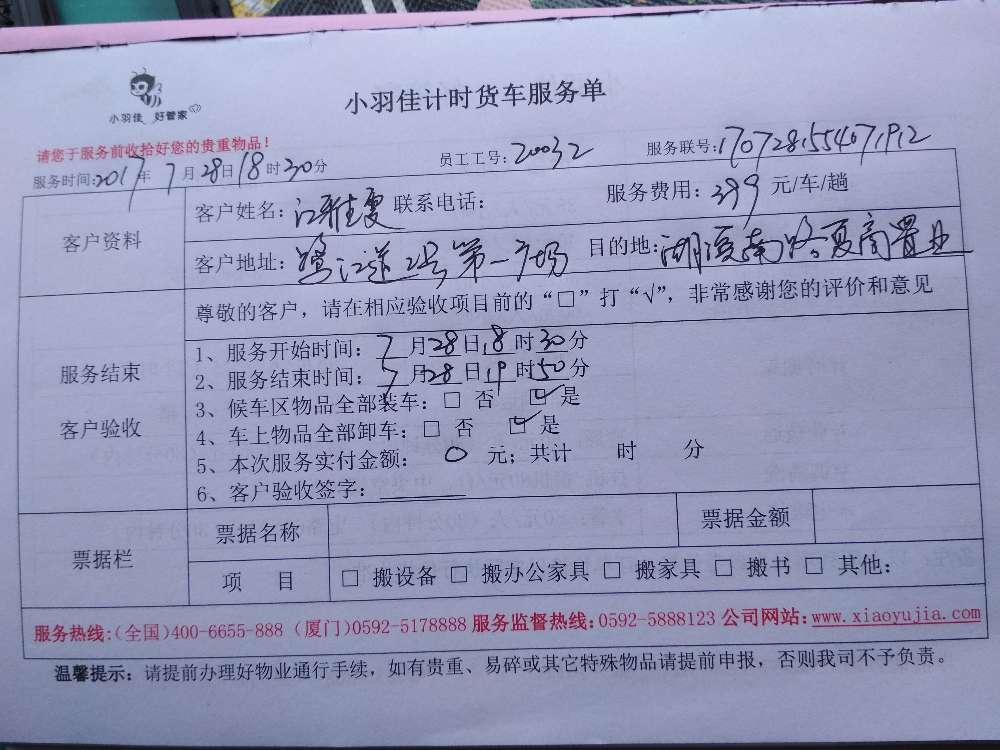 小羽佳 好管家
小羽佳计时货车服务单
请您于服务前收拾好您的贵重物品！
服务时间:2017年 7月28日18时30分 员工工号:20032 服务联号:1707281554071912
客户资料
客户姓名: 联系电话: 服务费用:399元/车/趟
客户地址:鹭江道2号第一广场 目的地:湖滨南路夏商置业
尊敬的客户，请在相应验收项目前的“□”打“√”，非常感谢您的评价和意见
服务结束
客户验收
1、服务开始时间：7月28日18时30分
2、服务结束时间：7月28日19时50分
3、候车区物品全部装车：□ 否 ☑是
4、车上物品全部卸车：□ 否 ☑是
5、本次服务实付金额： 0 元；共计 时 分
6、客户验收签字：
票据栏
票据名称 票据金额
项 目 □ 搬设备 □ 搬办公家具 □ 搬家具 □ 搬书 □ 其他：
服务热线:(全国)400-6655-888 (厦门)0592-5178888 服务监督热线:0592-5888123 公司网站:www.xiaoyujia.com
温馨提示：请提前办理好物业通行手续，如有贵重、易碎或其它特殊物品请提前申报，否则我司不予负责。